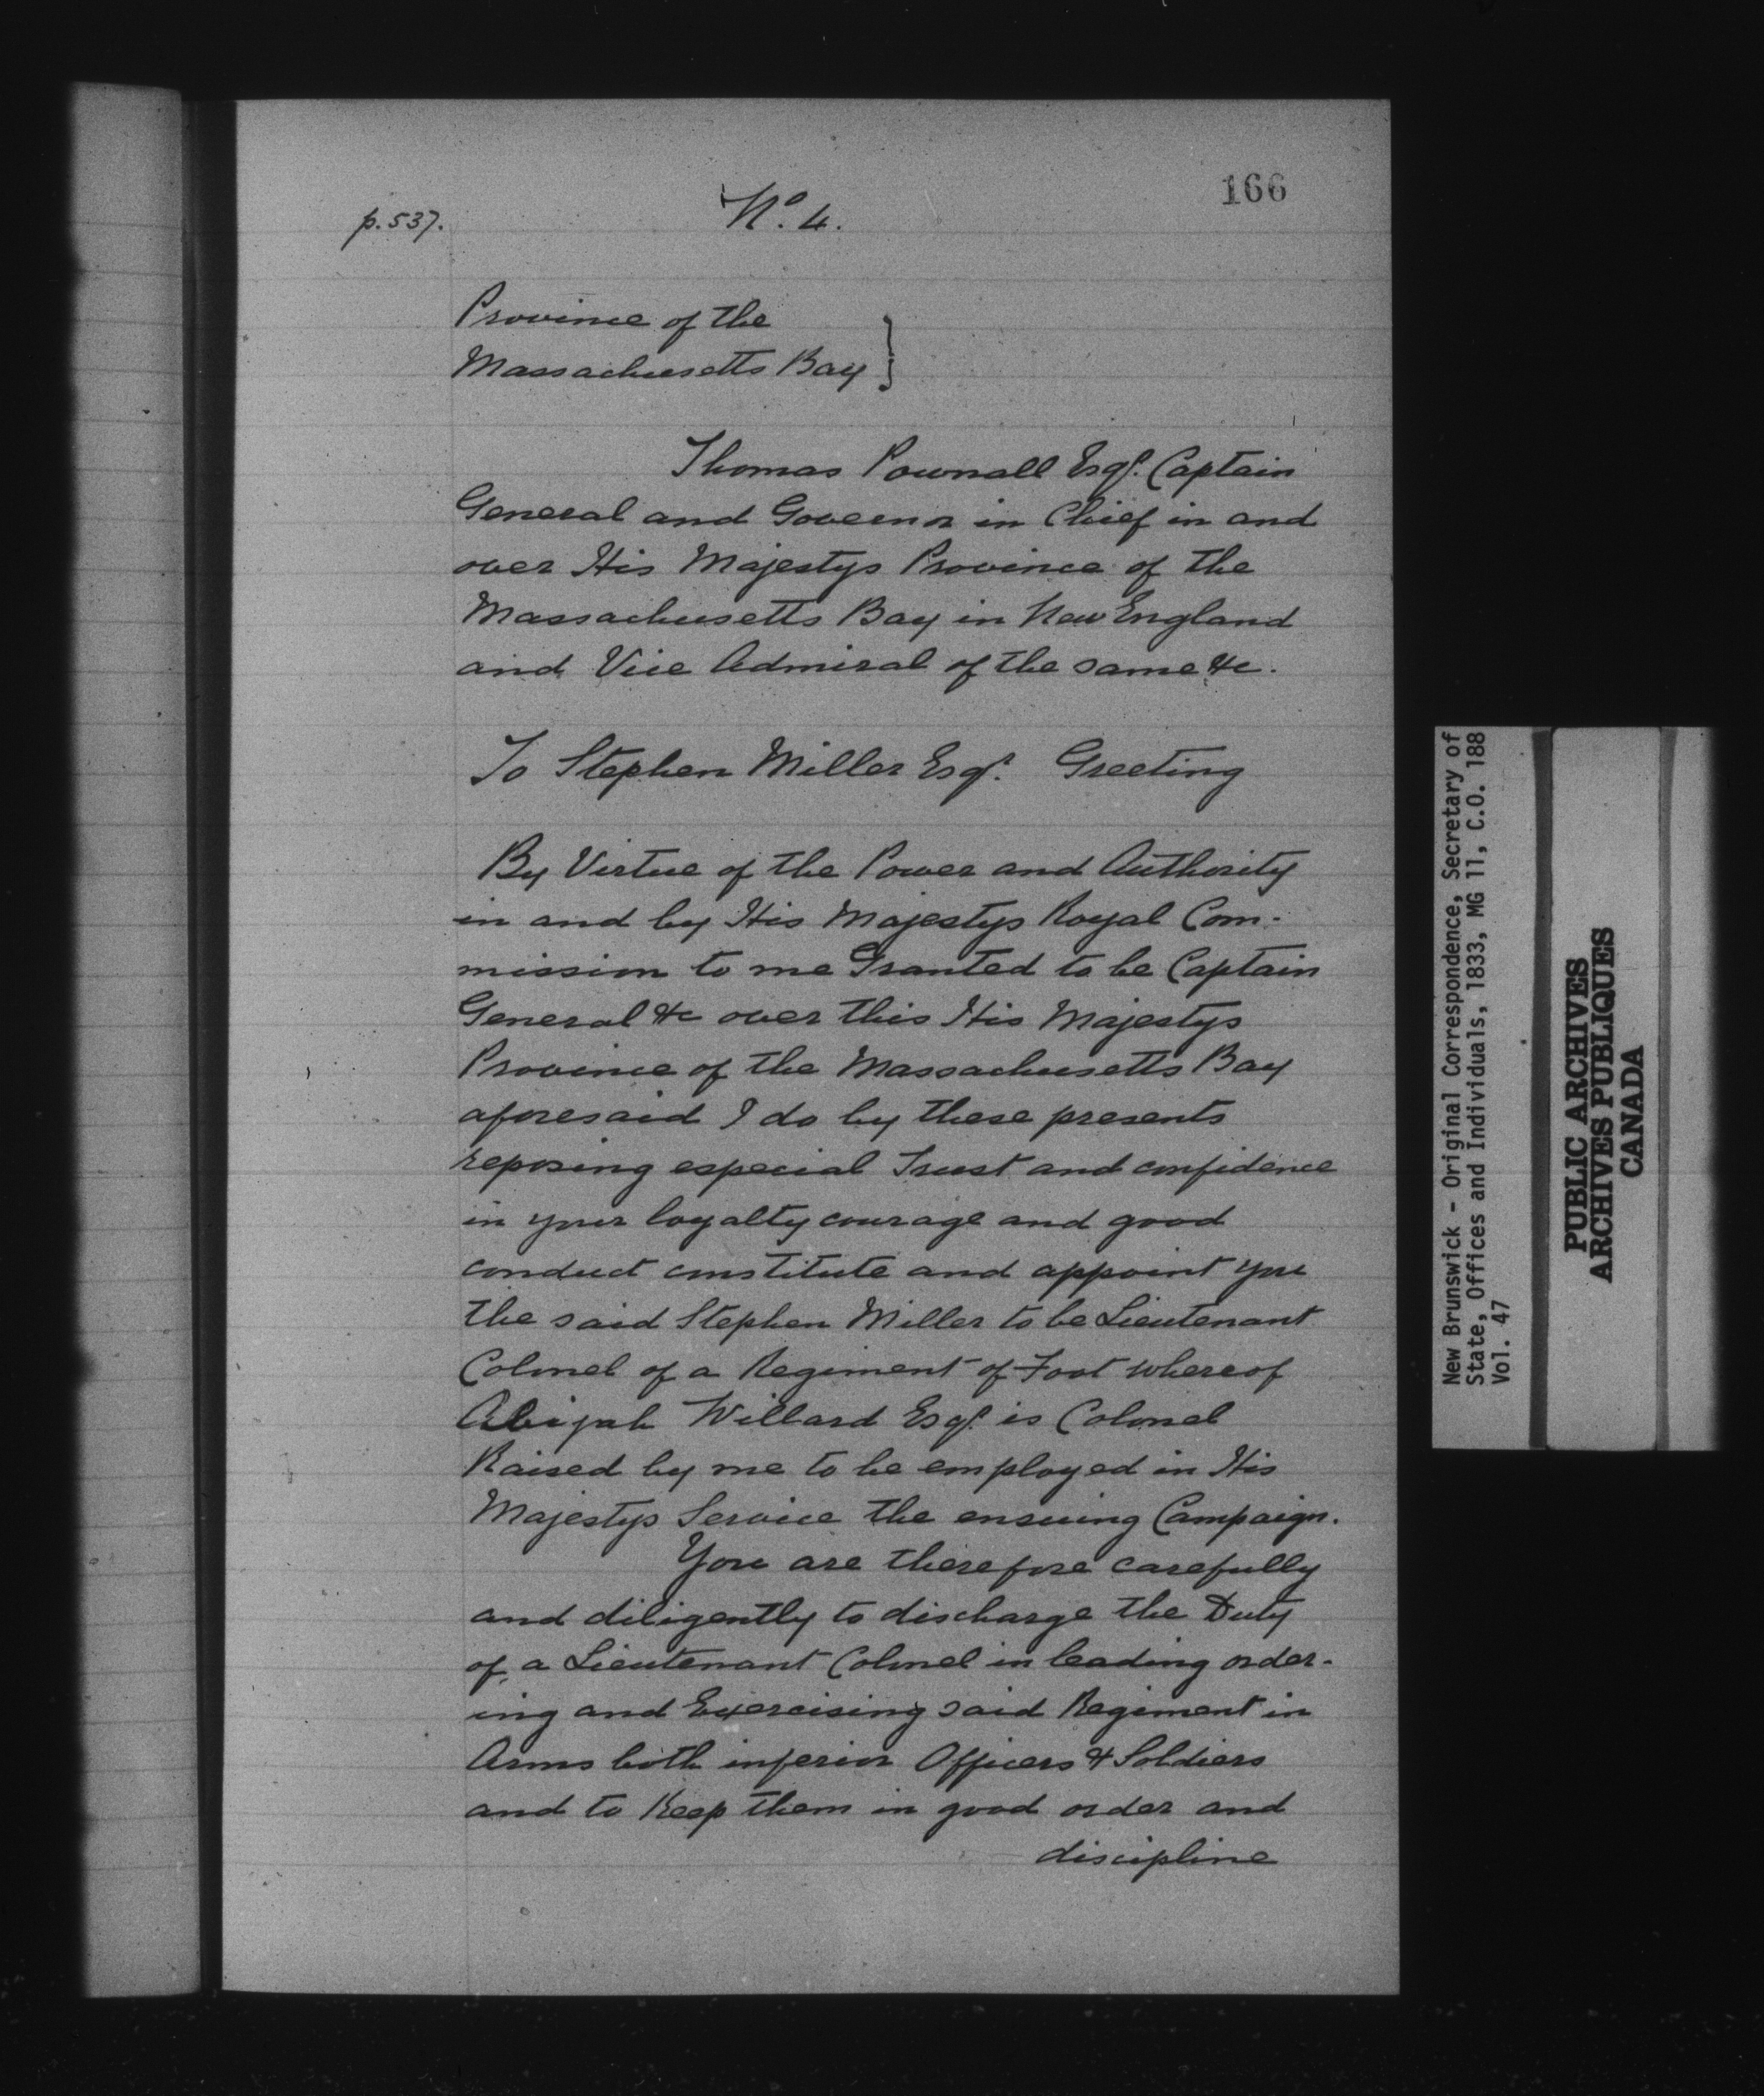 166
p. 537.
No. 4.
Province of the
Massachusetts Bay }
Thomas Pownall Esqr. Captain
General and Governor in Chief in and
over His Majestys Province of the
Massachusetts Bay in New England
and Vice Admiral of the same &c.
To Stephen Miller Esqr. Greeting
By Virtue of the Power and Authority
in and by His Majestys Royal Com-
mission to me Granted to be Captain
General &c over this His Majestys
Province of the Massachusetts Bay
aforesaid I do by these presents
reposing especial Trust and confidence
in your loyalty courage and good
conduct constitute and appoint you
the said Stephen Miller to be Lieutenant
Colonel of a Regiment of Foot whereof
Abijah Willard Esqr. is Colonel
Raised by me to be employed in His
Majestys Service the ensuing Campaign.
You are therefore carefully
and diligently to discharge the Duty
of a Lieutenant Colonel in leading order-
ing and Exercising said Regiment in
Arms both inferior Officers & Soldiers
and to Keep them in good order and
discipline
New Brunswick - Original Correspondence, Secretary of
State, Offices and Individuals, 1833, MG 11, C.O. 188
Vol. 47
PUBLIC ARCHIVES
ARCHIVES PUBLIQUES
CANADA